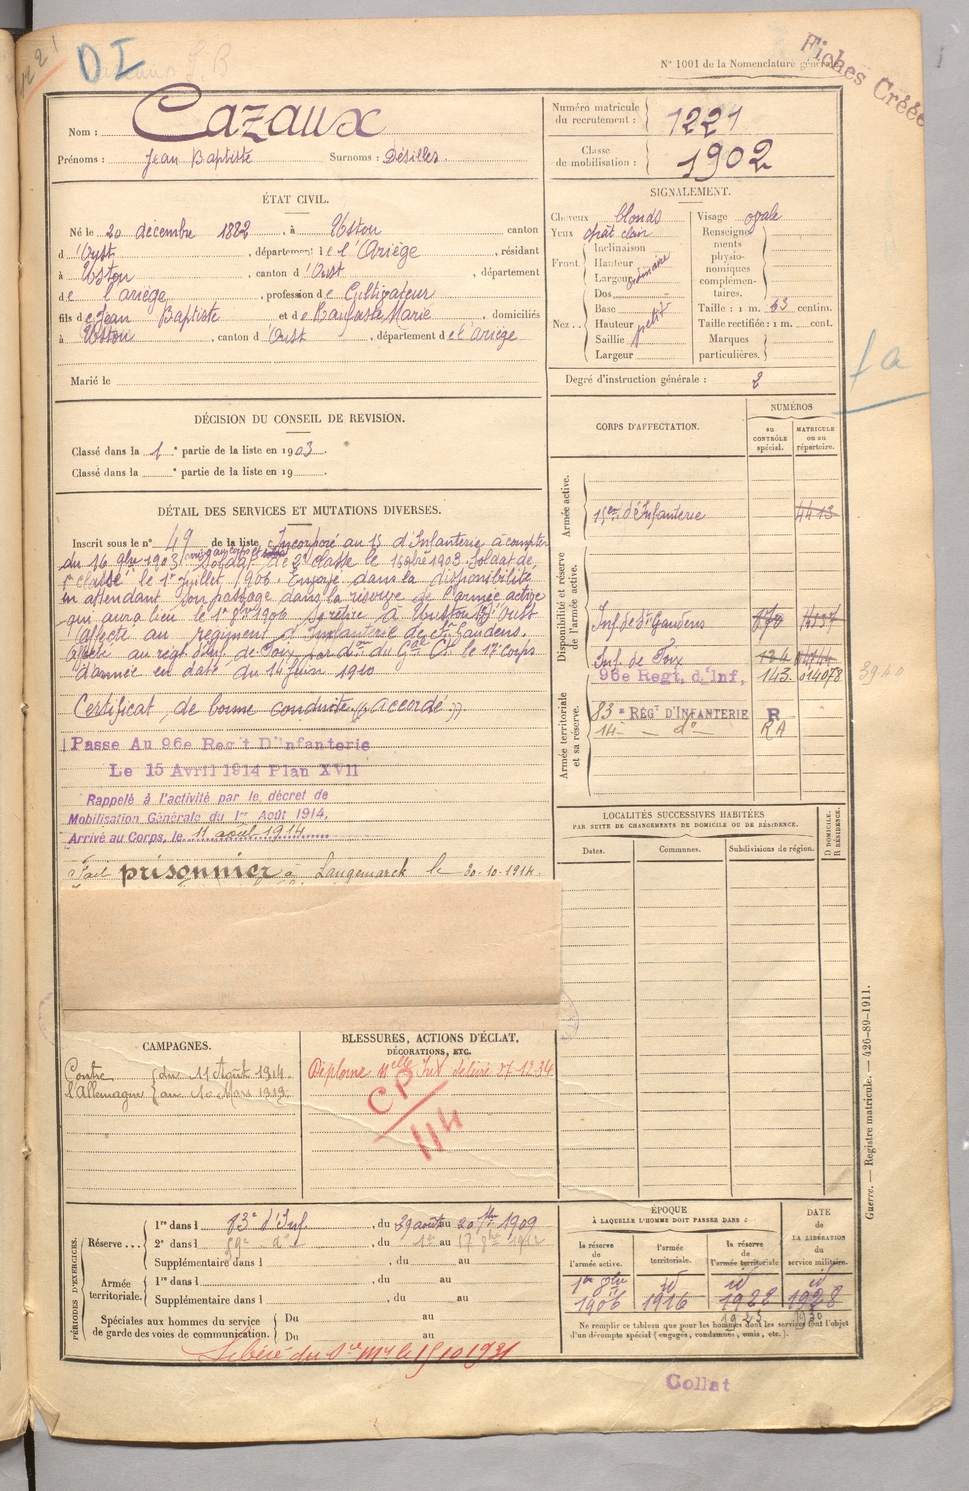 1221
D I
N° 1001 de la Nomenclature générale.
Fiches Créée
Nom : Cazaux
Prénoms : Jean Baptiste Surnoms : Désillès
Numéro matricule du recrutement : 1221
Classe de mobilisation : 1902
ÉTAT CIVIL.
Né le 20 décembre 1882, à Ustou canton
d'Oust, département de l'Ariège, résidant
à Ustou, canton d'Oust, département
de l'ariège, profession de Cultivateur
fils de Jean Baptiste et de Marie, domiciliés
à Ustou, canton d'Oust, département de l'ariège
Marié le
SIGNALEMENT.
Cheveux blonds
Yeux chât clair
Front. Inclinaison
Hauteur
Largeur ordinaire
Nez.. Dos
Base
Hauteur petit
Saillie
Largeur
Visage ovale
Renseignements physionomiques complémentaires.
Taille : 1 m. 63 centim.
Taille rectifiée : 1 m. cent.
Marques particulières.
Degré d'instruction générale : 2
fa
DÉCISION DU CONSEIL DE REVISION.
Classé dans la 1e partie de la liste en 1903.
Classé dans la e partie de la liste en 19
DÉTAIL DES SERVICES ET MUTATIONS DIVERSES.
Inscrit sous le n° 49 de la liste Incorporé au 15 d'Infanterie à compter
du 16 9bre 1903. Soldat de 2e classe le 16 9bre 1903. Soldat de
1e classe le 1er juillet 1906. Envoyé dans la disponibilité
en attendant son passage dans la réserve de l'armée active
qui aura lieu le 1er 8bre 1906 Se retire à Ustou Ct d'Oust
Affecté au régiment d'Infanterie de St Gaudens.
Affecté au régt d'Inf. de Foix, par don du Gal Ct le 17e Corps
d'armée en date du 14 juin 1910
Certificat de bonne conduite "accordé".
Passe Au 96e Reg't D'Infanterie
Le 15 Avril 1914 Plan XVII
Rappelé à l'activité par le décret de
Mobilisation Générale du 1er Août 1914,
Arrivé au Corps, le 11 août 1914
Fait prisonnier à Langemarck le 30.10.1914.
CORPS D'AFFECTATION.
NUMÉROS
au CONTRÔLE spécial.
MATRICULE ou au répertoire.
Armée active.
15e d'Infanterie 4413
Disponibilité et réserve de l'armée active.
Inf. de St Gaudens
Inf. de Foix
96e Regt. d'Inf, 143. 014078
3940
Armée territoriale et sa réserve.
83e RÉGT D'INFANTERIE R
14 - do - RA
LOCALITÉS SUCCESSIVES HABITÉES
PAR SUITE DE CHANGEMENTS DE DOMICILE OU DE RÉSIDENCE.
Dates. Communes. Subdivisions de région. D DOMICILE. R RÉSIDENCE.
CAMPAGNES.
Contre l'Allemagne du 11 Août 1914
au 10 Mars 1919.
BLESSURES, ACTIONS D'ÉCLAT,
DÉCORATIONS, ETC.
Diplome délivré
CP
114
PÉRIODES D'EXERCICES.
Réserve... 1re dans l 83e d'Inf. , du 29 août au 20 7bre 1909
2e dans l 59e do , du 1er au 17 8bre 1912
Supplémentaire dans l , du au
Armée territoriale. 1re dans l , du au
Supplémentaire dans l , du au
Spéciales aux hommes du service de garde des voies de communication. Du au
Du au
Libéré du Sce Mre le 15 10 1931
ÉPOQUE
À LAQUELLE L'HOMME DOIT PASSER DANS :
la réserve de l'armée active. l'armée territoriale. la réserve de l'armée territoriale
DATE de LA LIBÉRATION du service militaire.
1er 8bre 1906 id 1916 id 1922 id 1928
1923 1930
Ne remplir ce tableau que pour les hommes dont les services font l'objet
d'un décompte spécial (engagés, condamnés, omis, etc.).
Guerre. — Registre matricule. — 426-89-1911.
Collat